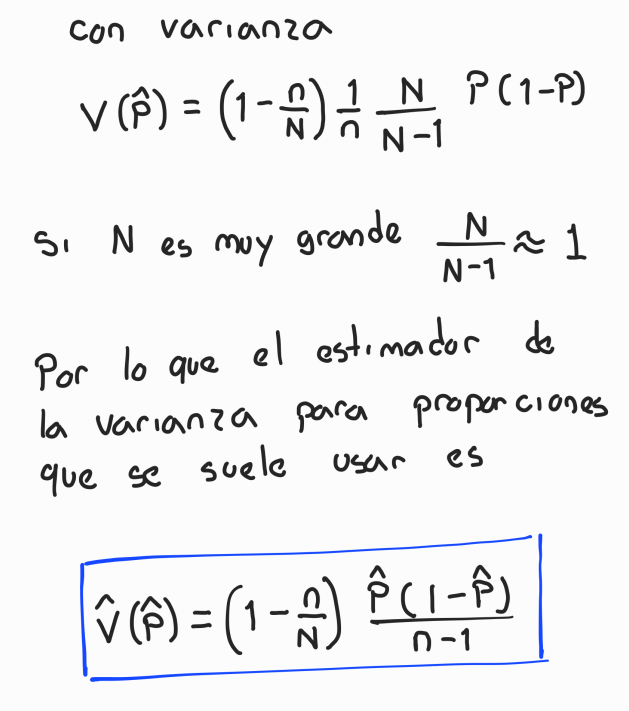 con varianza
V(p̂) = (1 - n/N) 1/n N/(N-1) P(1-P)
Si N es muy grande N/(N-1) ≈ 1
Por lo que el estimador de
la varianza para proporciones
que se suele usar es
V̂(p̂) = (1 - n/N) p̂(1-p̂)/(n-1)